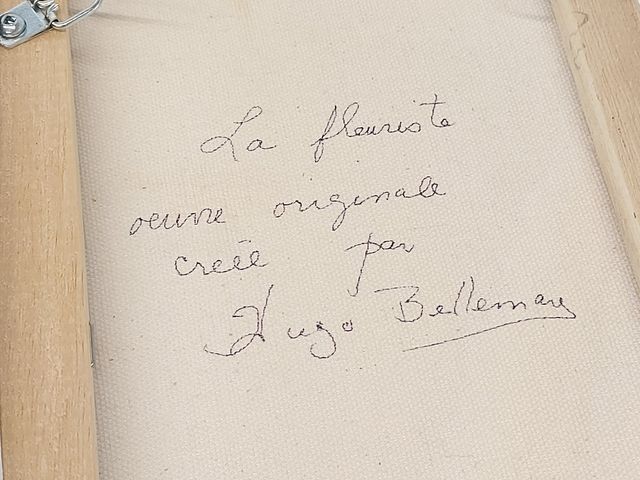 La fleuriste
oeuvre originale
créée par
Hugo Bellemare